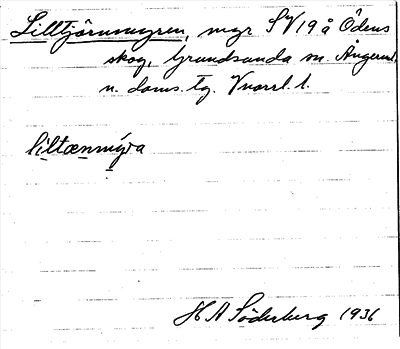 Lilltjärnmyren, myr SV 19 å Ödens
skog, Grundsunda sn. Ångerml.
n. doms. tg. Vnorrl. l.
liltænmýra
H A Söderberg 1936